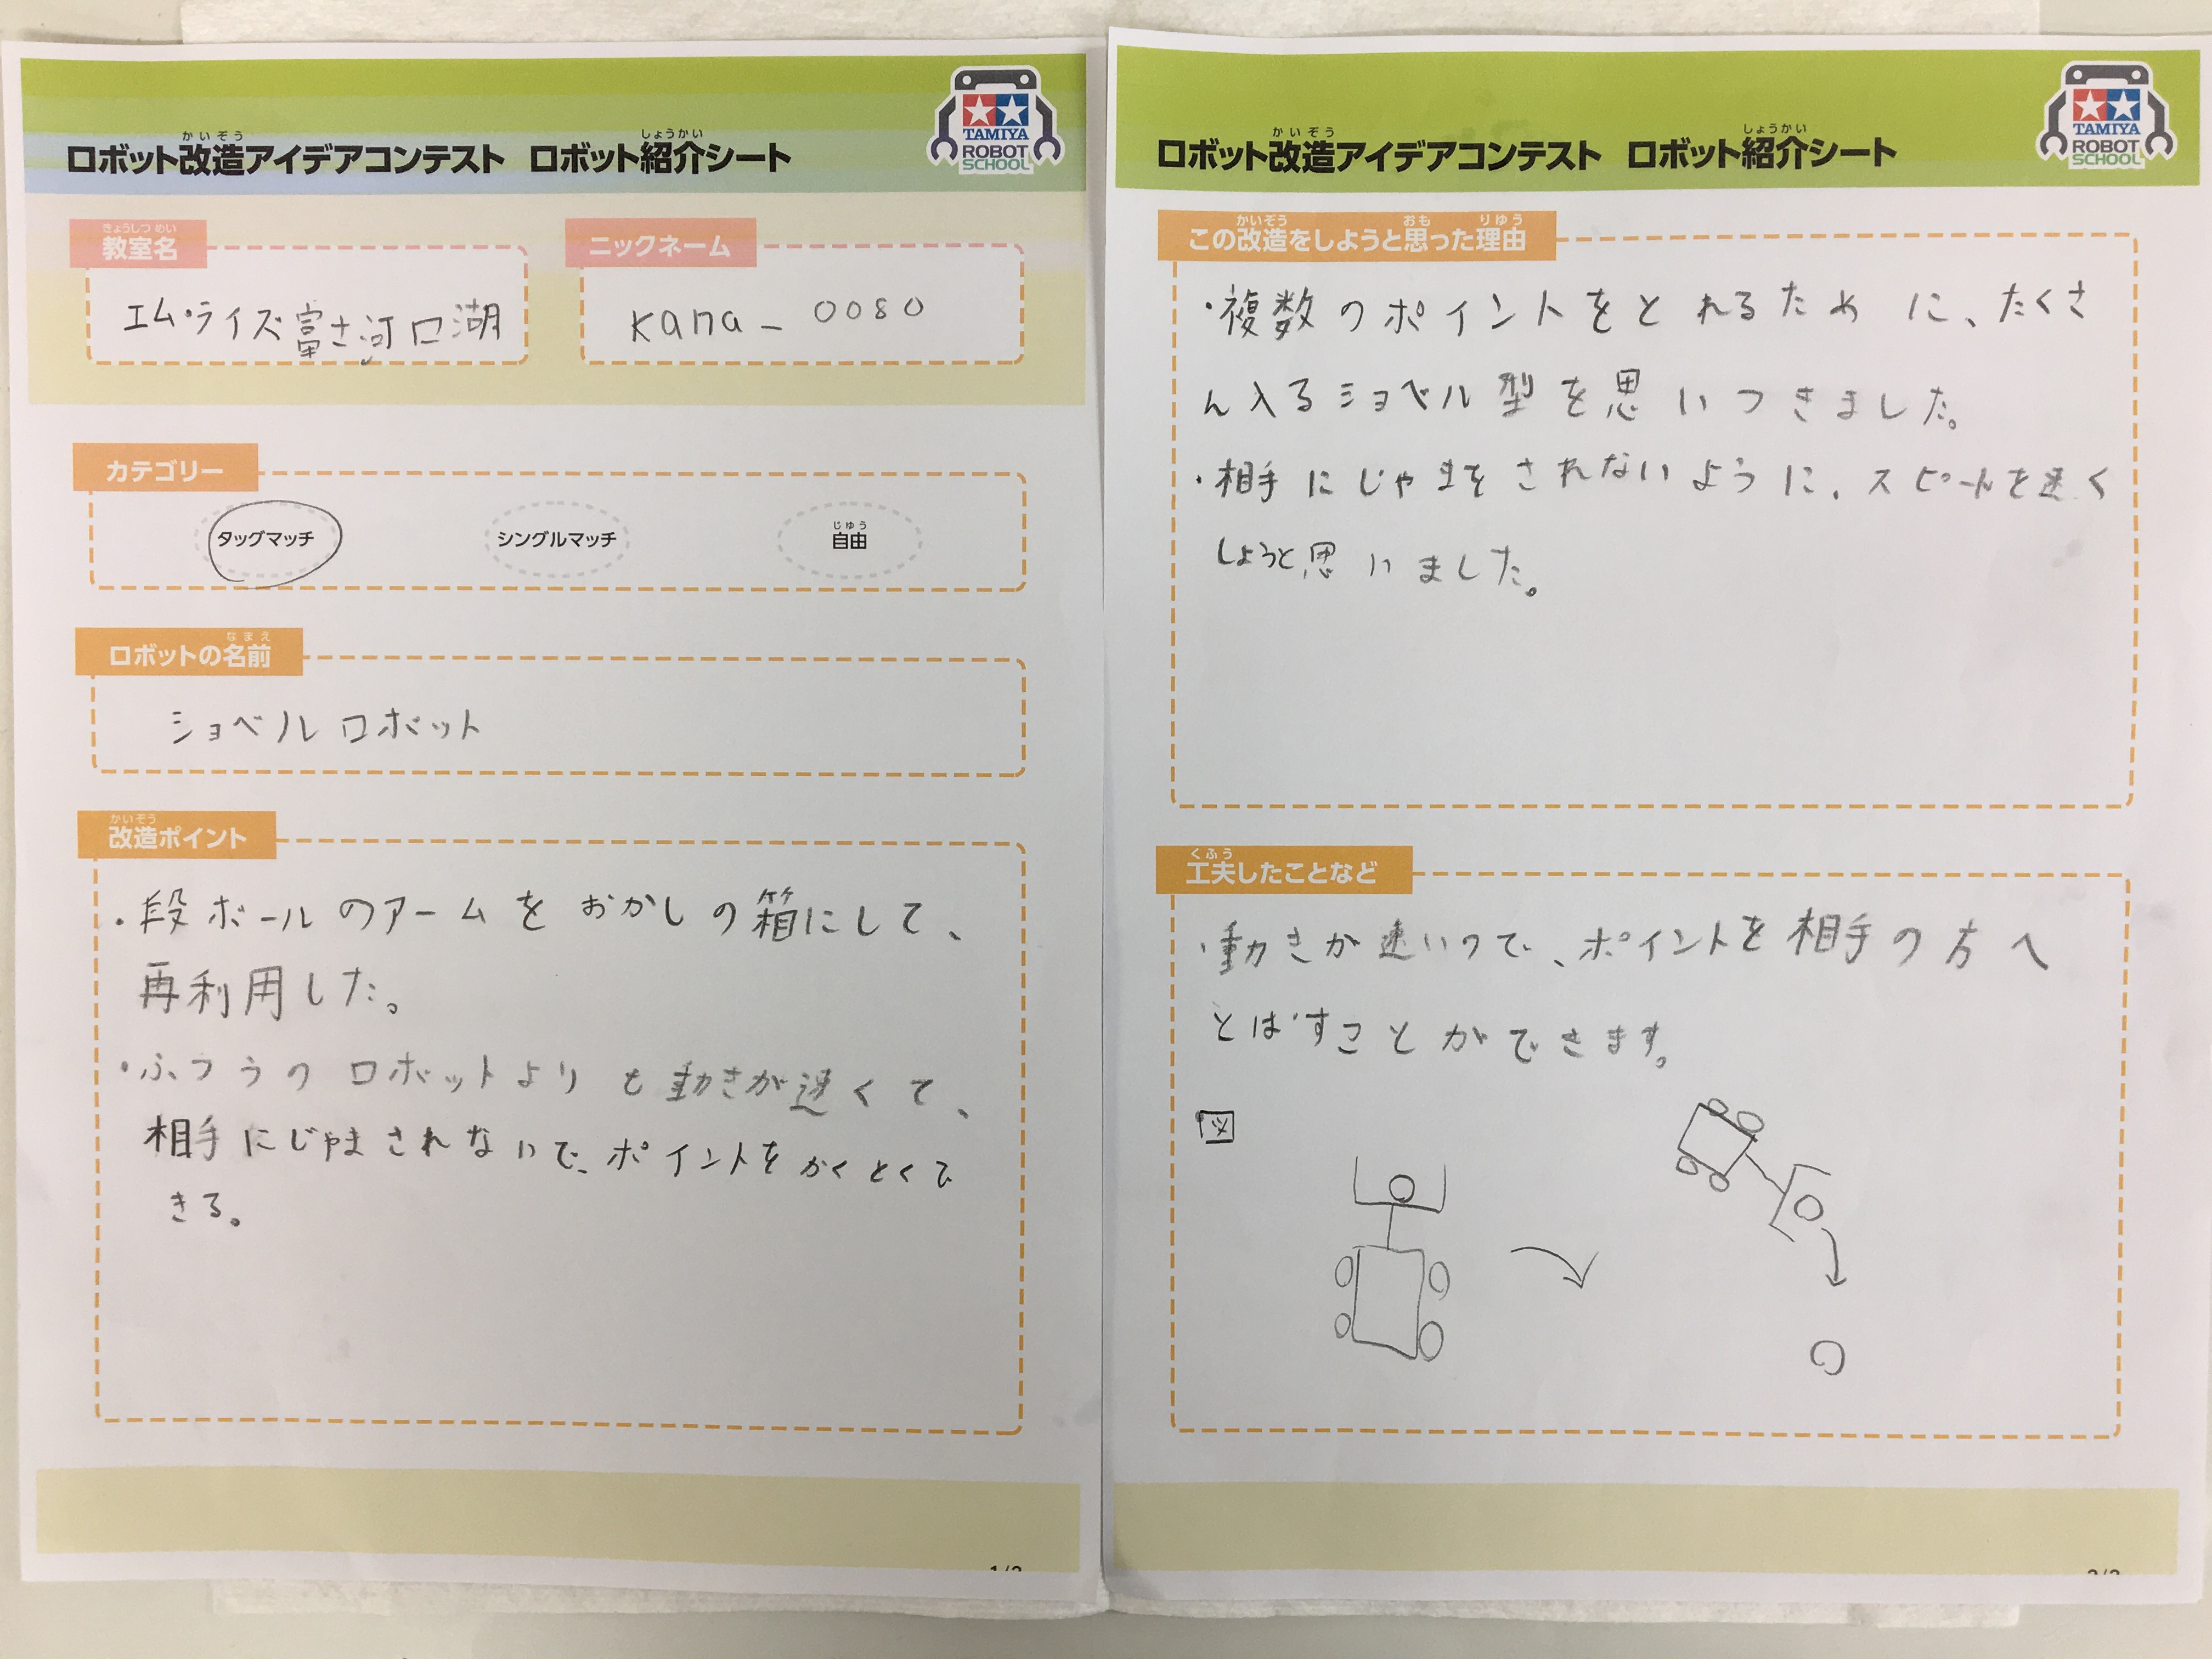 かいぞう しょうかい
ロボット改造アイデアコンテスト ロボット紹介シート
TAMIYA
ROBOT
SCHOOL
きょうしつ めい
教室名
エム・ライズ富士河口湖
ニックネーム
kana_0080
カテゴリー
タッグマッチ
シングルマッチ
じゆう
自由
なまえ
ロボットの名前
ショベルロボット
かいぞう
改造ポイント
・段ボールのアームをおかしの箱にして、
再利用した。
・ふつうのロボットよりも動きが速くて、
相手にじゃまされないで、ポイントをかくとくで
きる。
かいぞう しょうかい
ロボット改造アイデアコンテスト ロボット紹介シート
TAMIYA
ROBOT
SCHOOL
かいぞう おも りゆう
この改造をしようと思った理由
・複数のポイントをとれるために、たくさ
ん入るショベル型を思いつきました。
・相手にじゃまをされないように、スピードを速く
しようと思いました。
くふう
工夫したことなど
・動きが速いので、ポイントを相手の方へ
とばすことができます。
図